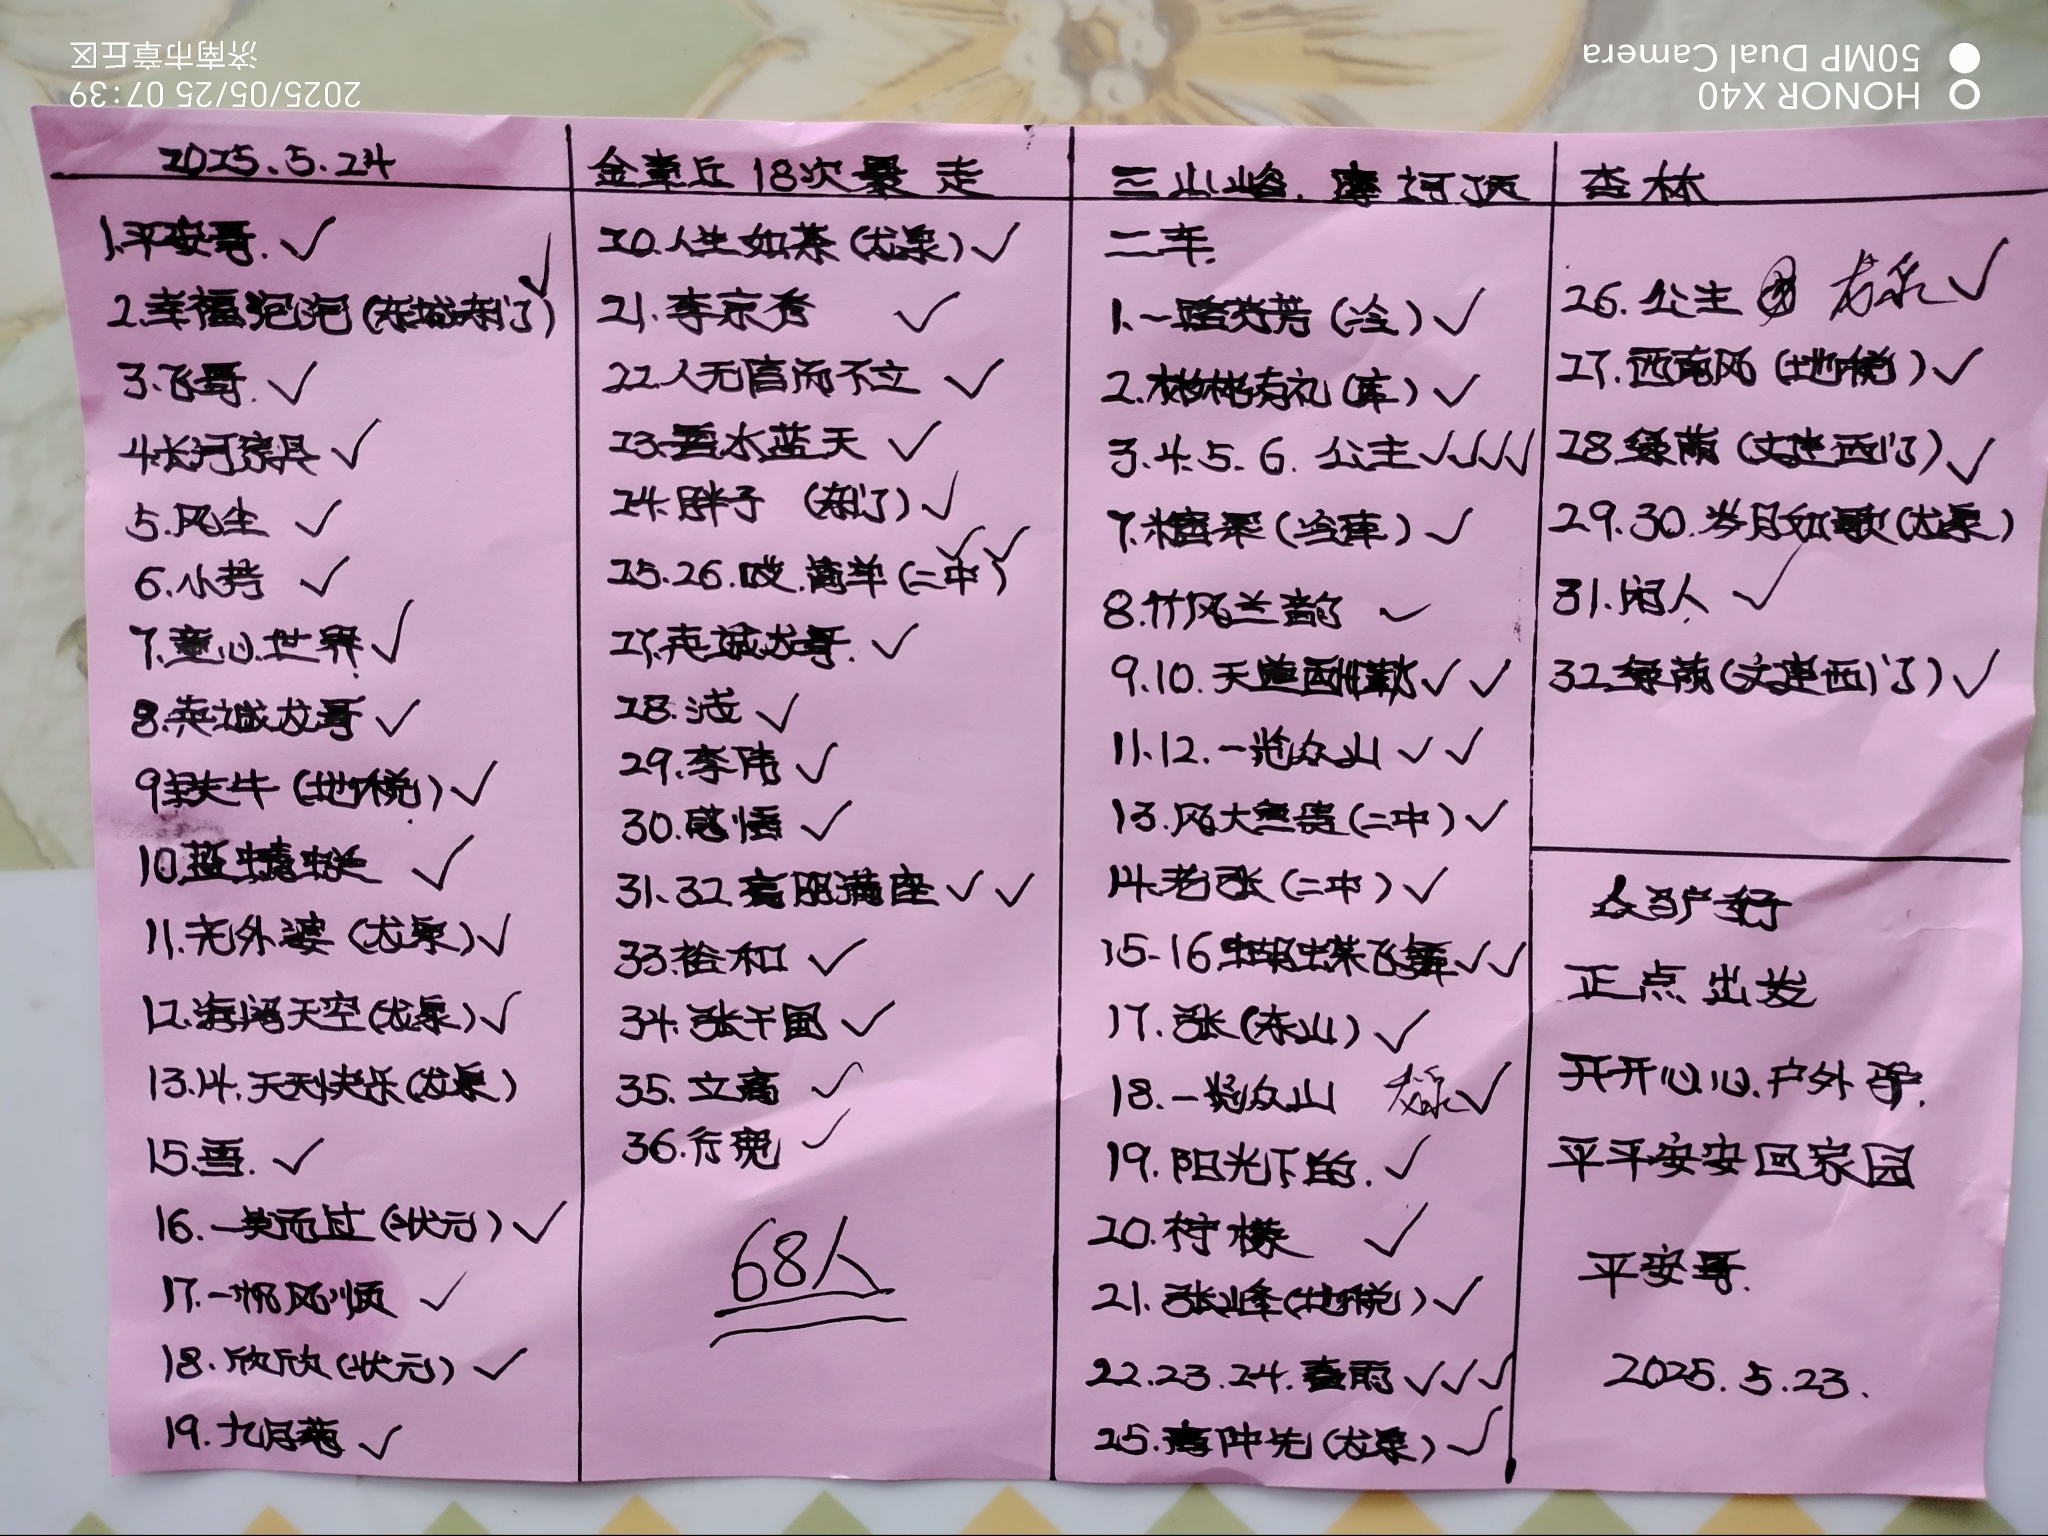 2025.5.24
1.平安哥.✓
2.幸福泡泡(东城东门)✓
3.飞哥.✓
4.长河家具✓
5.风尘✓
6.小特✓
7.童心世界✓
8.英诚龙哥✓
9铁牛(地税)✓
10.蓝蜻蜓✓
11.光外婆(龙泉)✓
12.海阔天空(龙泉)✓
13.14.天天快乐(龙泉)
15.雪.✓
16.一笑而过(状元)✓
17.一帆风顺✓
18.欣欣(状元)✓
19.九月菊✓
金章丘18次暴走
20.人生如茶(龙泉)✓
21.李京秀✓
22.人无信而不立✓
23.碧水蓝天✓
24.胖子(东门)✓
25.26.哎.简单(二中)✓✓
27.英诚龙哥.✓
28.浅✓
29.李伟✓
30.感悟✓
31.32高朋满座✓✓
33.裕和✓
34.张干国✓
35.立高✓
36.行宽✓
68人
三山峪.摩诃顶
二车.
1.一路芬芳(冷)✓
2.彬彬有礼(库)✓
3.4.5.6.公主✓✓✓✓
7.糖果(冷库)✓
8.竹风兰韵✓
9.10.天道酬勤✓✓
11.12.一览众山✓✓
13.风大鱼贵(二中)✓
14.老张(二中)✓
15-16.蝴蝶飞舞✓✓
17.张(东山)✓
18.一览众山 龙泉✓
19.阳光下的.✓
20.柠檬✓
21.张峰(地税)✓
22.23.24.春雨✓✓✓
25.高仲先(龙泉)✓
杏林
26.公主 龙泉✓
27.西南风(地税)✓
28.绿荫(文建西门)✓
29.30.岁月如歌(龙泉)
31.闲人✓
32.绿荫(文建西门)✓
众驴好
正点出发
开开心心户外驴.
平平安安回家园
平安哥.
2025.5.23.
HONOR X40
50MP Dual Camera
2025/05/25 07:39
济南市章丘区